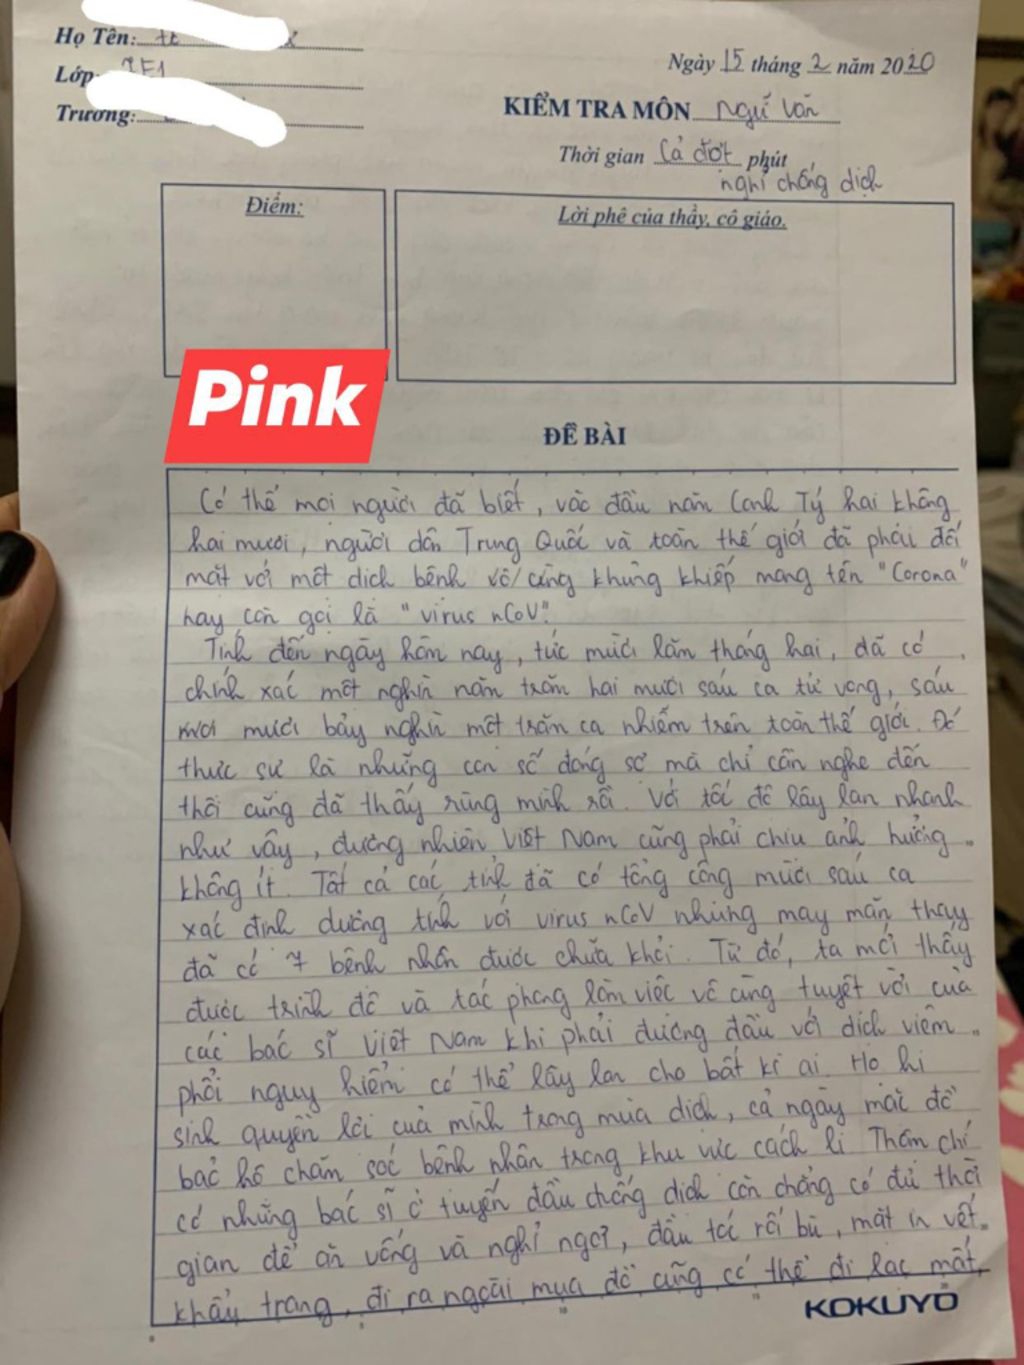 Họ Tên:
Lớp: 7E1
Trường:
Ngày 15 tháng 2 năm 2020
KIỂM TRA MÔN Ngữ Văn
Thời gian Cả đợt phút
nghỉ chống dịch
Điểm:
Lời phê của thầy, cô giáo.
Pink
ĐỀ BÀI
Có thể mọi người đã biết, vào đầu năm Canh Tý hai không
hai mươi, người dân Trung Quốc và toàn thế giới đã phải đối
mặt với một dịch bệnh vô cùng khủng khiếp mang tên "Corona"
hay còn gọi là "virus nCoV".
Tính đến ngày hôm nay, tức mười lăm tháng hai, đã có
chính xác một nghìn năm trăm hai mươi sáu ca tử vong, sáu
mươi bảy nghìn một trăm ca nhiễm trên toàn thế giới. Đó
thực sự là những con số đáng sợ mà chỉ cần nghe đến
thôi cũng đã thấy rùng mình rồi. Với tốc độ lây lan nhanh
như vậy, đương nhiên Việt Nam cũng phải chịu ảnh hưởng
không ít. Tất cả các tỉnh đã có tổng cộng mười sáu ca
xác định dương tính với virus nCoV nhưng may mắn thay
đã có 7 bệnh nhân được chữa khỏi. Từ đó, ta mới thấy
được trình độ và tác phong làm việc vô cùng tuyệt vời của
các bác sĩ Việt Nam khi phải đương đầu với dịch viêm
phổi nguy hiểm có thể lây lan cho bất kì ai. Họ hi
sinh quyền lợi của mình trong mùa dịch, cả ngày mặc đồ
bảo hộ chăm sóc bệnh nhân trong khu vực cách li. Thậm chí
có những bác sĩ ở tuyến đầu chống dịch còn chẳng có đủ thời
gian để ăn uống và nghỉ ngơi, đầu tóc rối bù, mặt in vết
khẩu trang, đi ra ngoài mua đồ cũng có thể đi lạc mất,
KOKUYO